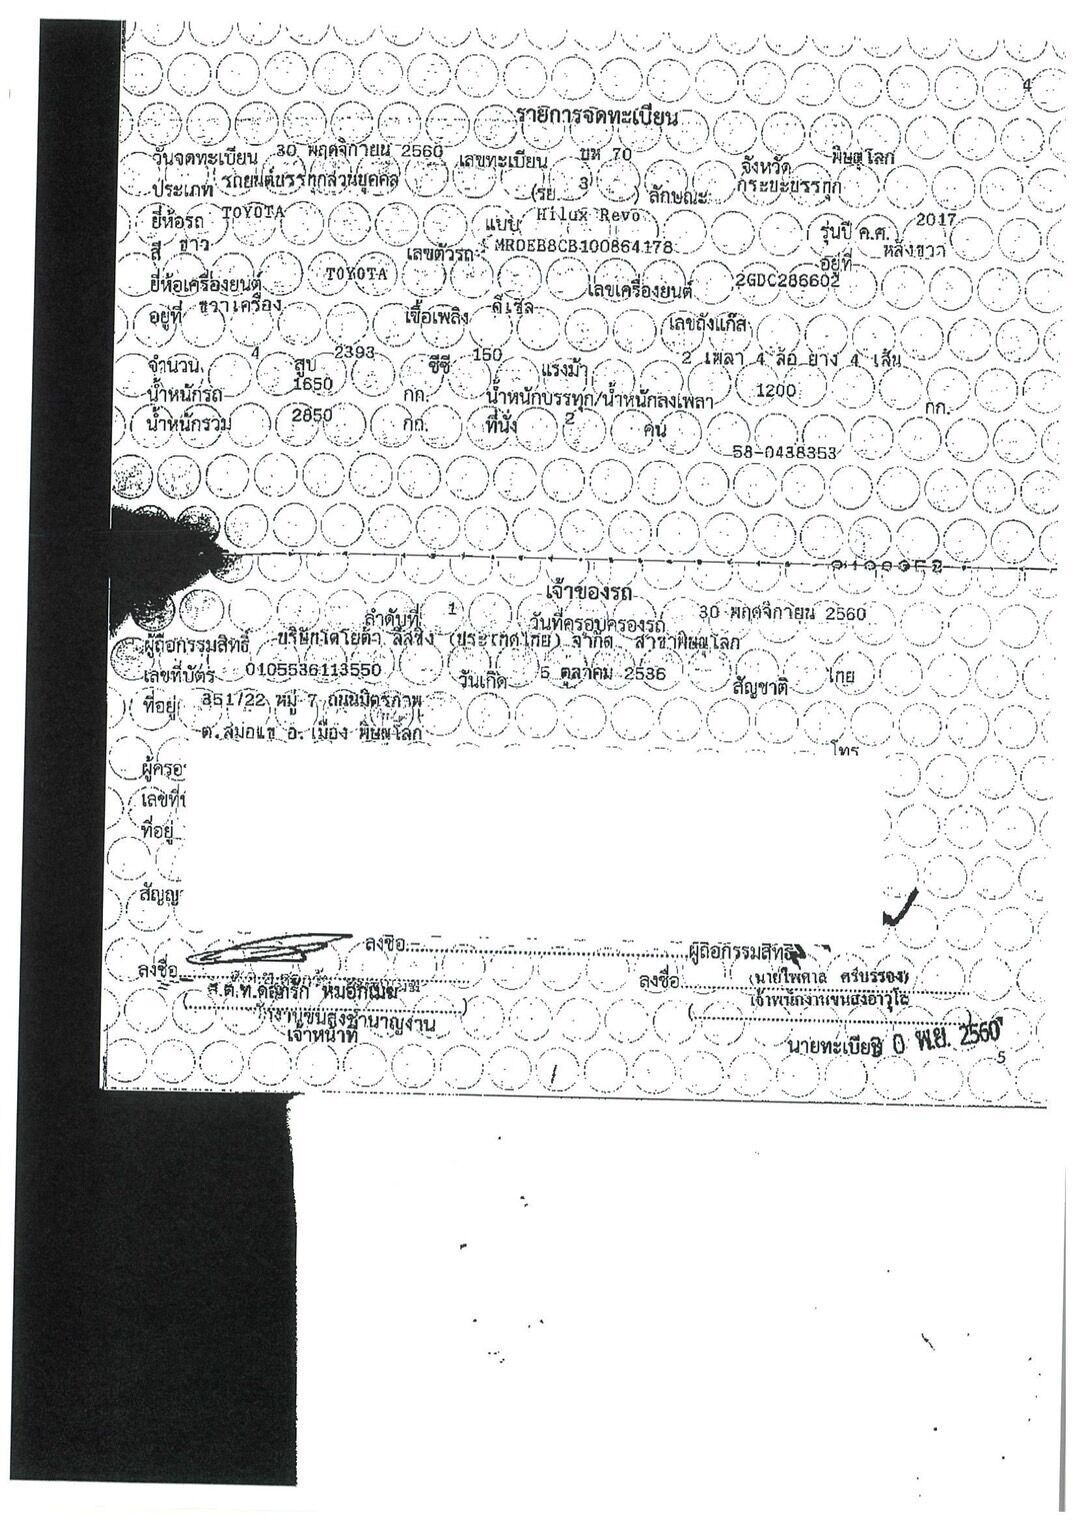 4
รายการจดทะเบียน
วันจดทะเบียน 30 พฤศจิกายน 2560 เลขทะเบียน บห 70 จังหวัด พิษณุโลก
ประเภท รถยนต์บรรทุกส่วนบุคคล (รย. 3 ) ลักษณะ กระบะบรรทุก
ยี่ห้อรถ TOYOTA แบบ Hilux Revo รุ่นปี ค.ศ. 2017
สี ขาว เลขตัวรถ MR0EB8CB100864178 อยู่ที่ หลังขวา
ยี่ห้อเครื่องยนต์ TOYOTA เลขเครื่องยนต์ 2GDC286602
อยู่ที่ ขวาเครื่อง เชื้อเพลิง ดีเซล เลขถังแก๊ส
จำนวน 4 สูบ 2393 ซีซี 150 แรงม้า 2 เพลา 4 ล้อ ยาง 4 เส้น
น้ำหนักรถ 1650 กก. น้ำหนักบรรทุก/น้ำหนักลงเพลา 1200 กก.
น้ำหนักรวม 2850 กก. ที่นั่ง 2 คน
58-0438353
เจ้าของรถ
ลำดับที่ 1 วันที่ครอบครองรถ 30 พฤศจิกายน 2560
ผู้ถือกรรมสิทธิ์ บริษัทโตโยต้า ลีสซิ่ง (ประเทศไทย) จำกัด สาขาพิษณุโลก
เลขที่บัตร 0105536113550 วันเกิด 5 ตุลาคม 2536 สัญชาติ ไทย
ที่อยู่ 351/22 หมู่ 7 ถนนมิตรภาพ
ต.สมอแข อ. เมือง พิษณุโลก
โทร
ผู้ครอ
เลขที่
ที่อยู่
สัญญ
ลงชื่อ ผู้ถือกรรมสิทธิ์
ลงชื่อ ลงชื่อ (นายไพศาล
เจ้าพนักงานขนส่งอาวุโส
งานขนส่งชำนาญงาน
เจ้าหน้าที่ นายทะเบียน 30 พ.ย. 2560
5